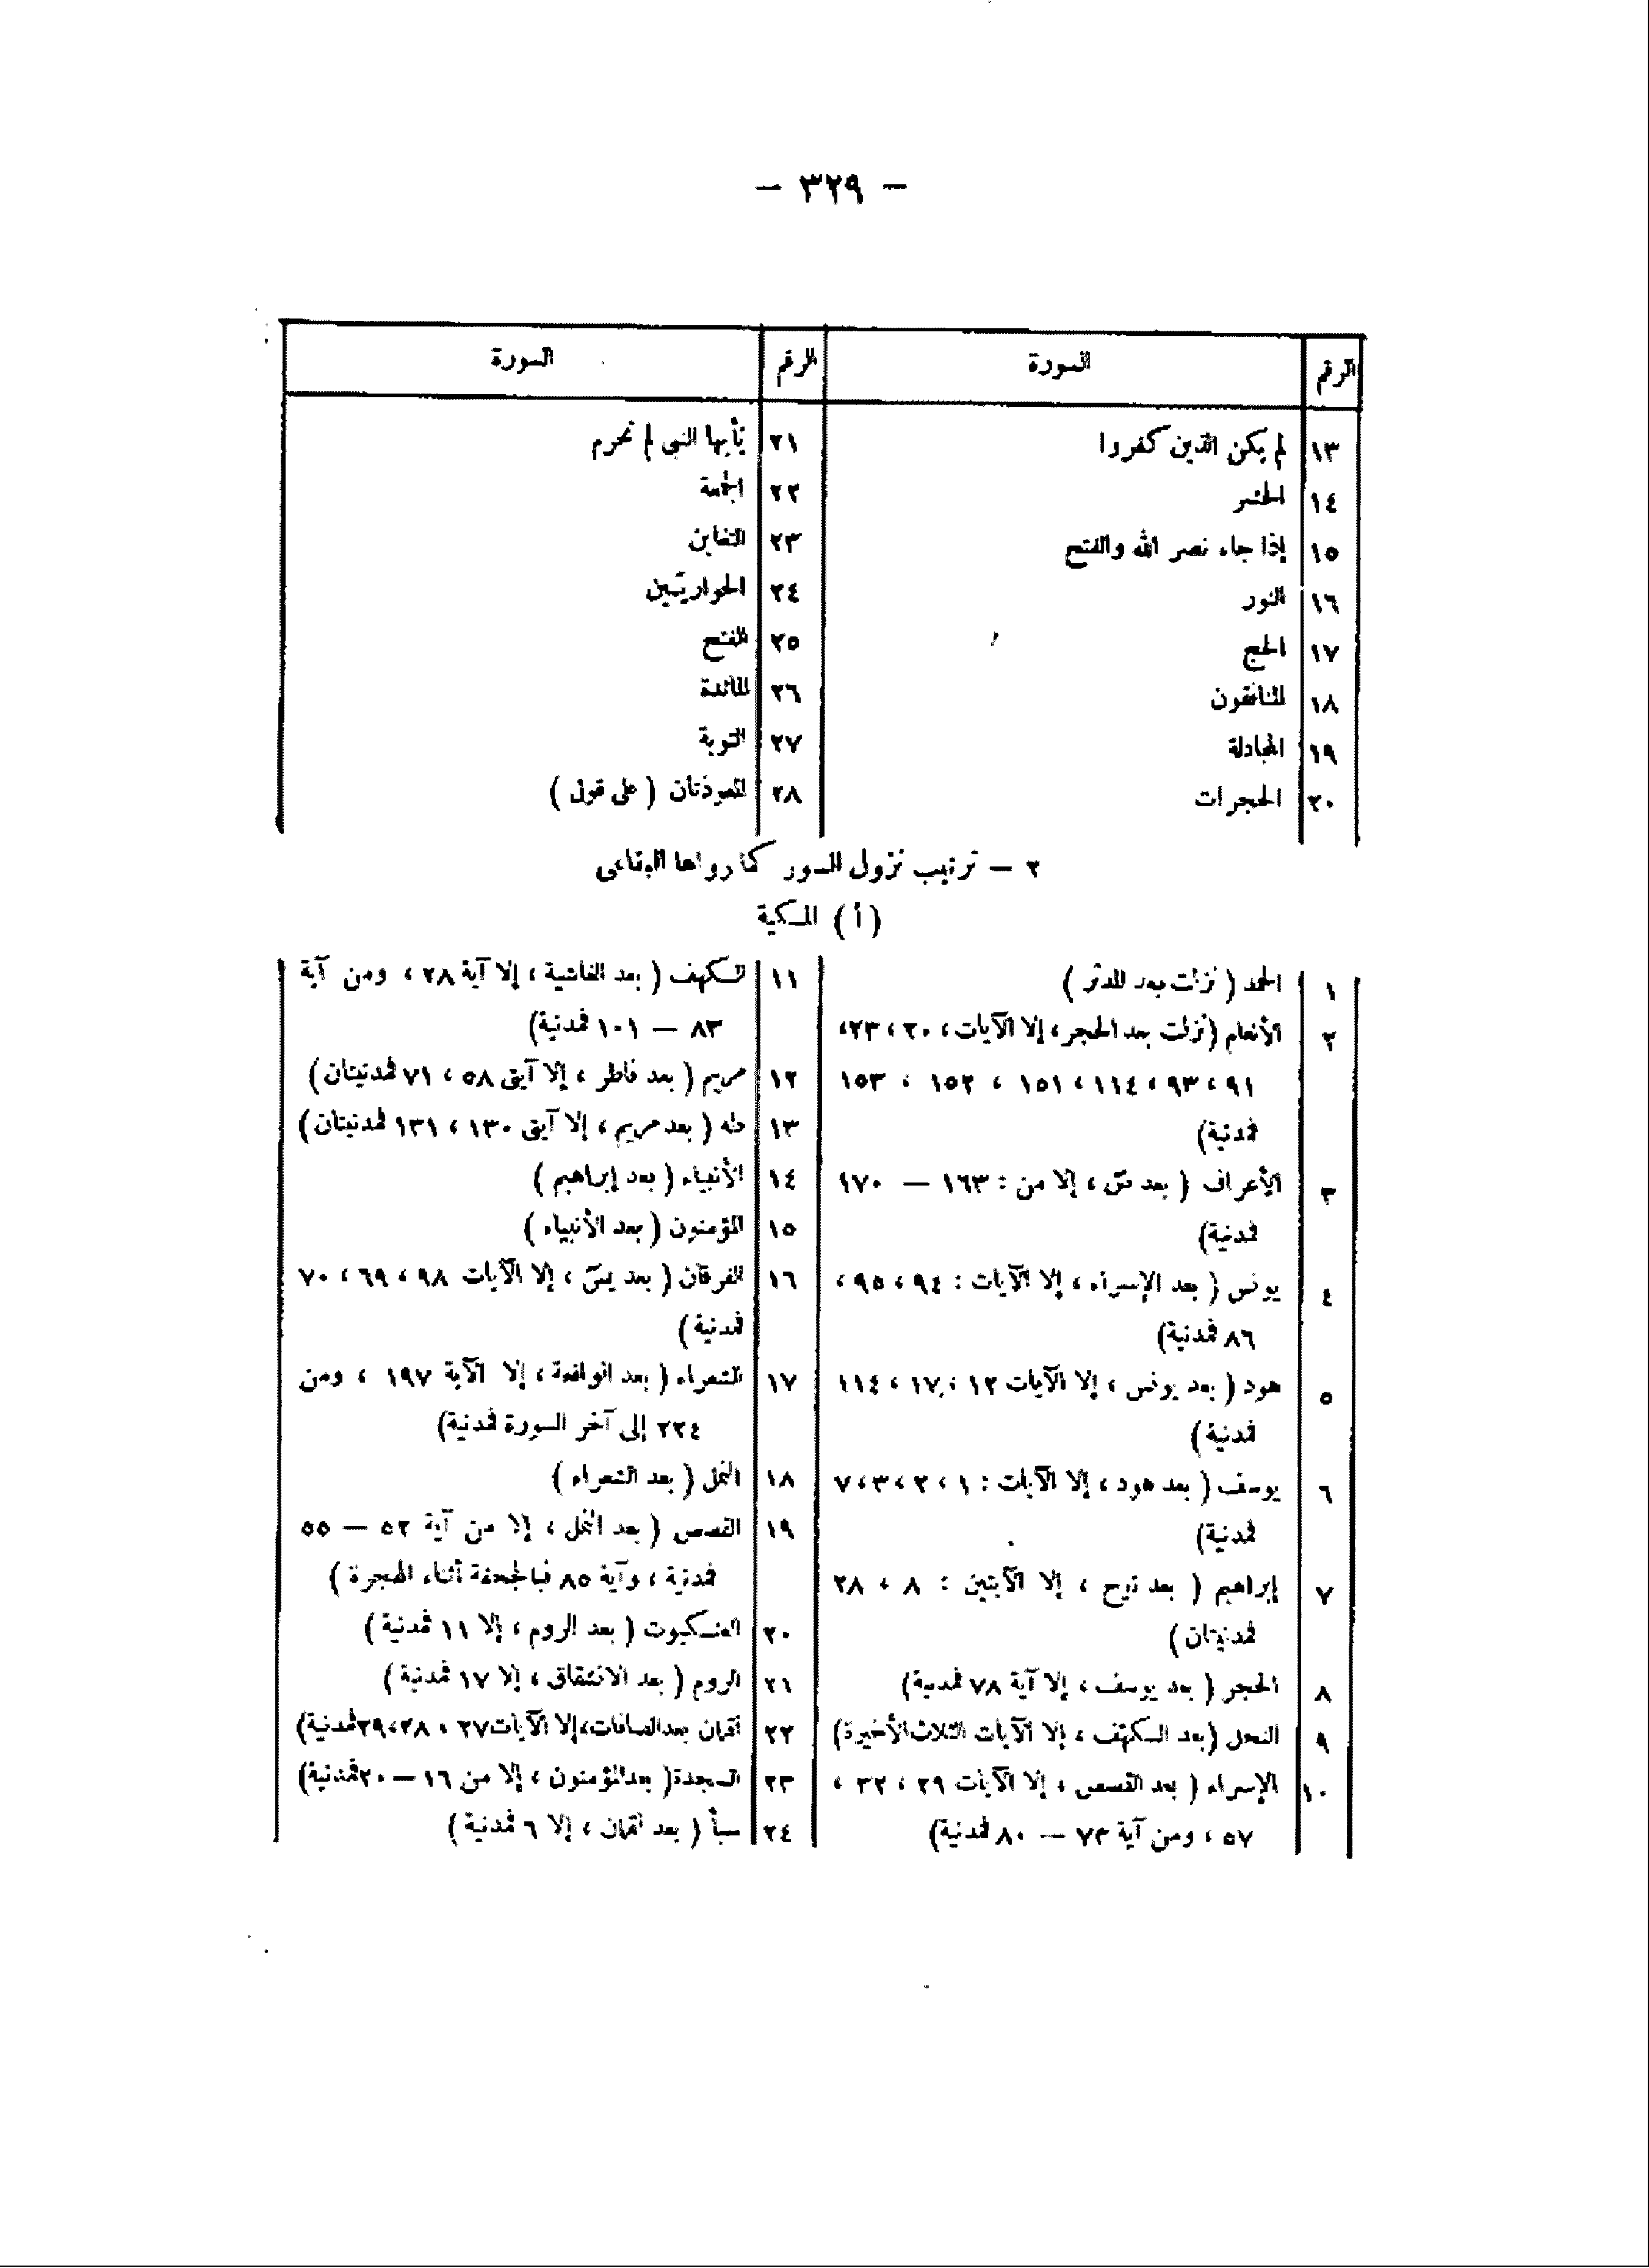 — ٣٢٩ —
الرقم السورة الرقم السورة
١٣ لم يكن الذين كفروا ٢١ يٰأيها النبى لم تحرم
١٤ الحشر ٢٢ الجمعة
١٥ إذا جاء نصر الله والفتح ٢٣ التغابن
١٦ النور ٢٤ الحواريّين
١٧ الحج ٢٥ الفتح
١٨ المنافقون ٢٦ المائدة
١٩ المجادلة ٢٧ التوبة
٢٠ الحجرات ٢٨ المعوذتان ( على قول )
٢ — ترتيب نزول السور كما رواها البقاعى
(أ) المكية
١ الحمد ( نزلت بعد المدثر )
٢ الأنعام (نزلت بعد الحجر، إلا الآيات، ٢٠، ٢٣،
٩١، ٩٣، ١١٤، ١٥١، ١٥٢، ١٥٣
فمدنية)
٣ الأعراف ( بعد صّ، إلا من : ١٦٣ — ١٧٠
فمدنية)
٤ يونس ( بعد الإسراء، إلا الآيات : ٩٤، ٩٥،
٨٦ فمدنية)
٥ هود ( بعد يونس، إلا الآيات ١٢، ١٧، ١١٤
فمدنية)
٦ يوسف ( بعد هود، إلا الآيات : ١، ٢، ٣، ٧
فمدنية)
٧ إبراهيم ( بعد نوح، إلا الآيتين : ٨، ٢٨
فمدنيتان )
٨ الحجر ( بعد يوسف، إلا آية ٧٨ فمدنية)
٩ النحل (بعد الكهف، إلا الآيات الثلاث الأخيرة)
١٠ الإسراء ( بعد القصص، إلا الآيات ٢٩، ٣٢،
٥٧، ومن آية ٧٣ — ٨٠ فمدنية)
١١ الكهف ( بعد الغاشية، إلا آية ٢٨، ومن آية
٨٣ — ١٠١ فمدنية)
١٢ مريم ( بعد فاطر، إلا آيتى ٥٨، ٧١ فمدنيتان )
١٣ طه ( بعد مريم، إلا آيتى ١٣٠، ١٣١ فمدنيتان )
١٤ الأنبياء ( بعد إبراهيم )
١٥ المؤمنون ( بعد الأنبياء )
١٦ الفرقان ( بعد يسّ، إلا الآيات ٩٨، ٦٩، ٧٠
فمدنية )
١٧ الشعراء ( بعد الواقعة، إلا الآية ١٩٧، ومن
٢٢٤ إلى آخر السورة فمدنية)
١٨ النمل ( بعد الشعراء )
١٩ القصص ( بعد النمل، إلا من آية ٥٢ — ٥٥
فمدنية، وآية ٨٥ فبالجحفة أثناء الهجرة )
٢٠ العنكبوت ( بعد الروم، إلا ١١ فمدنية )
٢١ الروم ( بعد الانشقاق، إلا ١٧ فمدنية )
٢٢ لقمان بعد الصافات، إلا الآيات ٢٧، ٢٨، ٢٩ فمدنية)
٢٣ السجدة( بعد المؤمنون، إلا من ١٦ — ٢٠ فمدنية)
٢٤ سبأ ( بعد لقمان، إلا ٦ فمدنية )